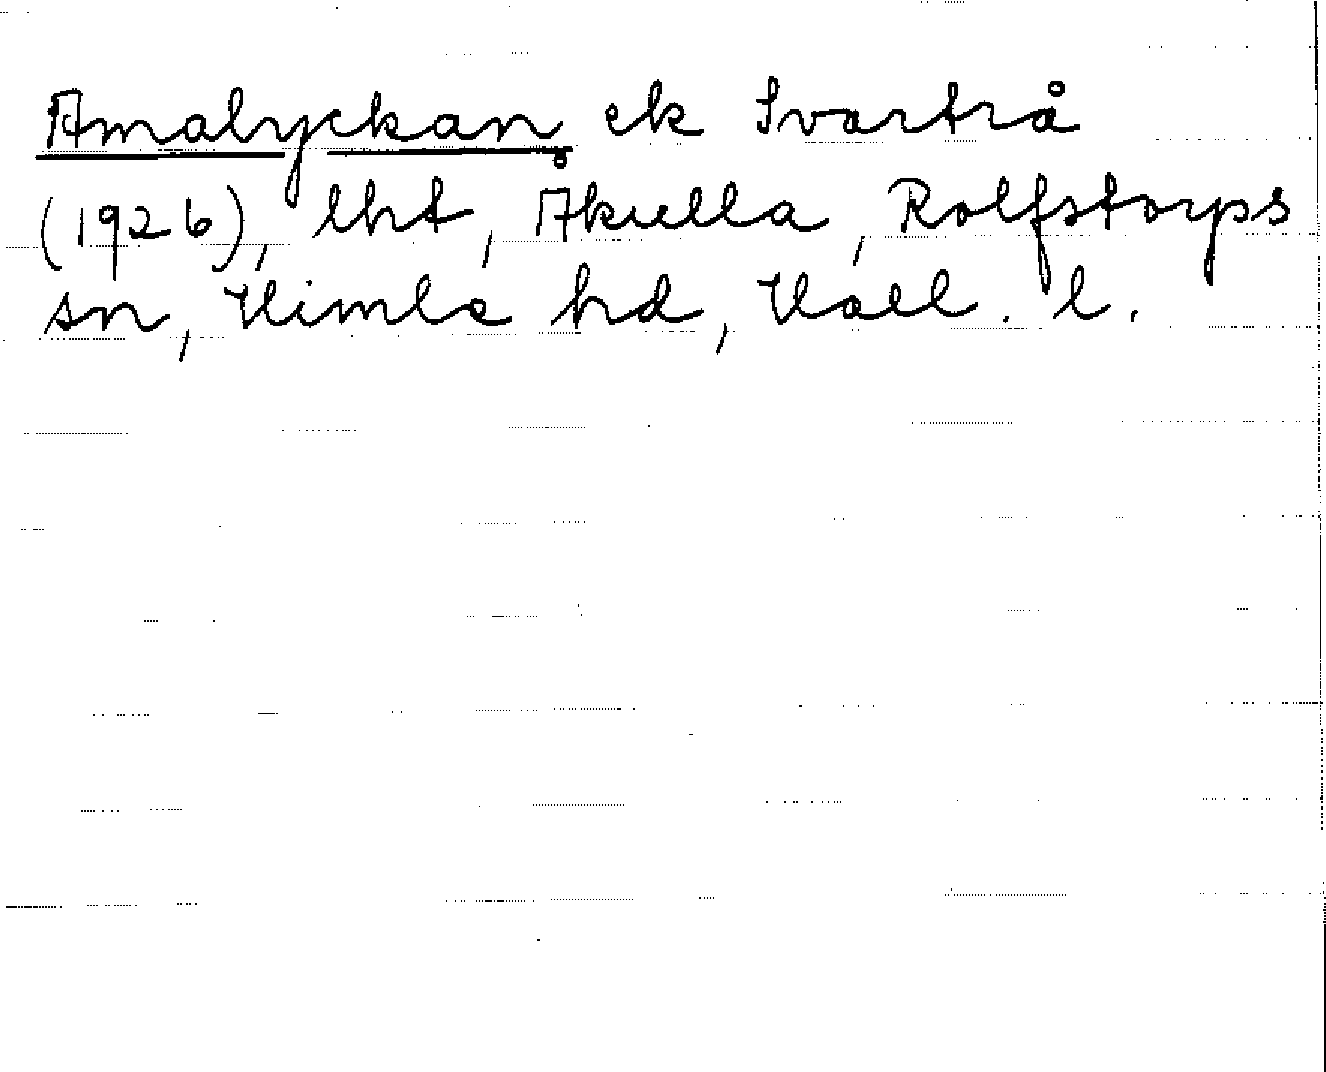 Amalyckan ek Svartrå
(1926), lht, Åkulla, Rolfstorps
sn, Himle hd, Hall. l.